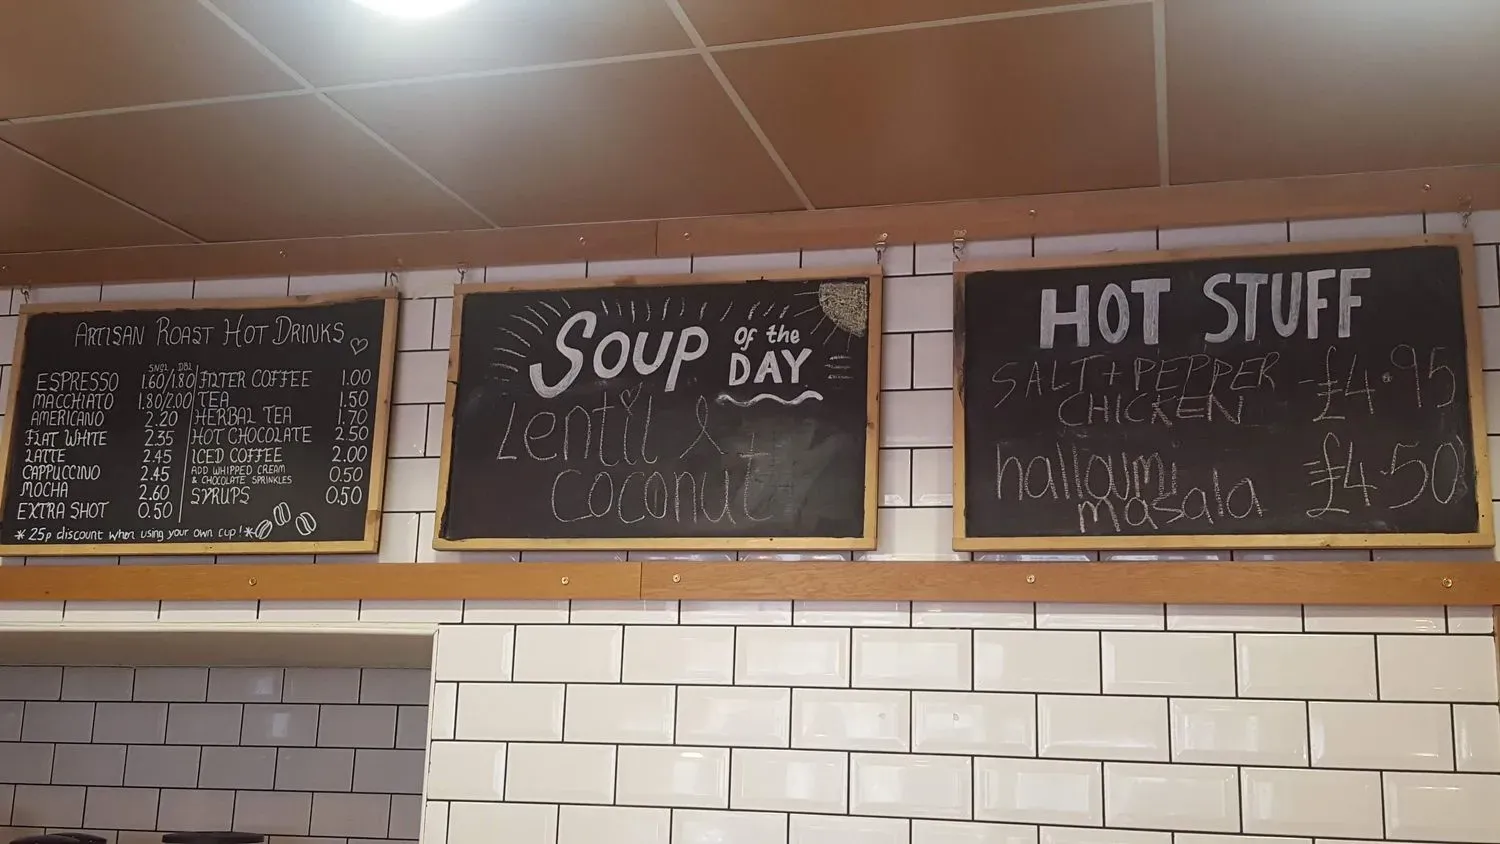 ARTISAN ROAST HOT DRINKS
SNGL DBL
ESPRESSO 1.60/1.80
MACCHIATO 1.80/2.00
AMERICANO 2.20
FLAT WHITE 2.35
LATTE 2.45
CAPPUCCINO 2.45
MOCHA 2.60
EXTRA SHOT 0.50
FILTER COFFEE 1.00
TEA 1.50
HERBAL TEA 1.70
HOT CHOCOLATE 2.50
ICED COFFEE 2.00
ADD WHIPPED CREAM
& CHOCOLATE SPRINKLES 0.50
SYRUPS 0.50
* 25p discount when using your own cup! *
SOUP OF the
DAY
Lentil &
coconut
HOT STUFF
SALT + PEPPER - £4.95
CHICKEN
halloumi £4.50
masala